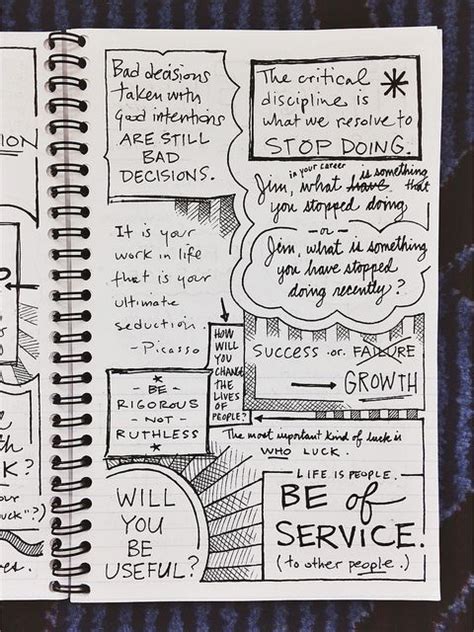 ION
Bad decisions
taken with
good intentions
ARE STILL
BAD
DECISIONS.
The critical *
discipline is
what we resolve to
STOP DOING.
in your career
Jim, what have is something that
you stopped doing
- or -
Jim, what is something
you have stopped
doing recently?
It is your
work in life
that is your
ultimate
seduction.
- Picasso
HOW
WILL
YOU
CHANGE
THE
LIVES
OF
PEOPLE?
SUCCESS or FAILURE
→ GROWTH
*
- BE -
RIGOROUS
- NOT -
RUTHLESS
*
The most important kind of luck is
WHO LUCK.
WILL
YOU
BE
USEFUL?
LIFE IS PEOPLE.
BE of
SERVICE.
(to other people.)
K?
uck"?)